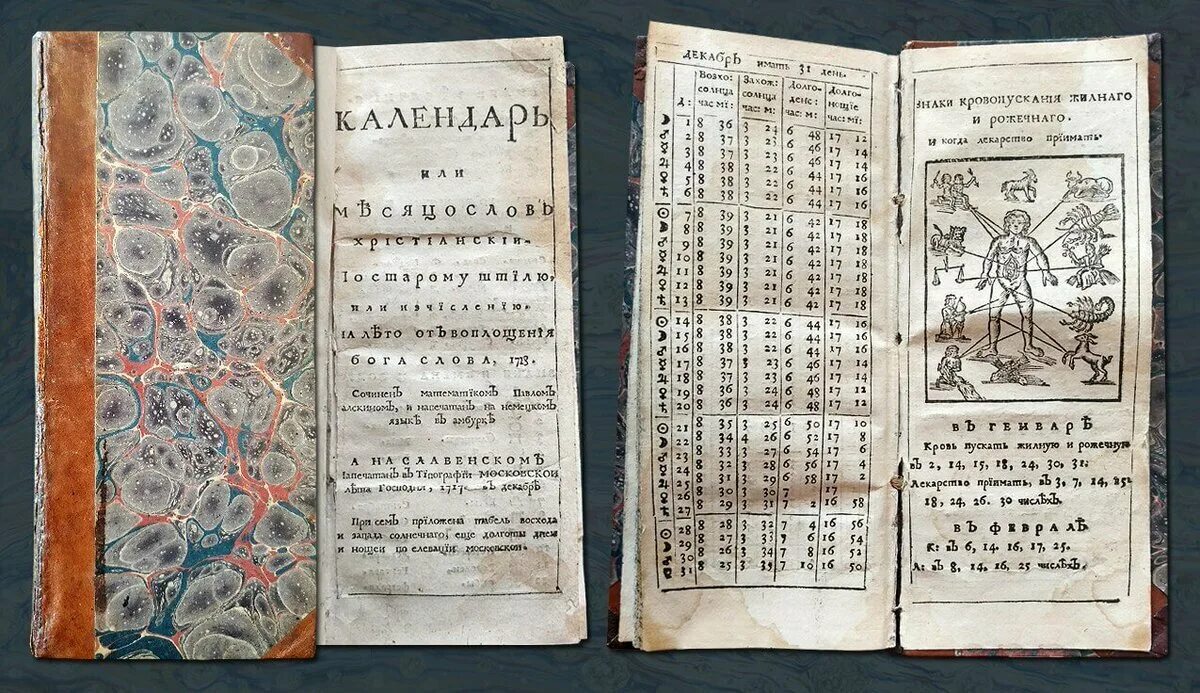 КАЛЕНДАРЬ
или
МѢСЯЦОСЛОВЪ
ХРІСТІАНСКІИ.
По старому штілю,
или изчісленію.
НА ЛѢТО ОТЪ ВОПЛОЩЕНІЯ
БОГА СЛОВА, 1718.
Сочиненъ математікомъ Павломъ
алскиномъ, и напечатанъ на немецкомъ
языкѣ въ амбуркѣ
А НА СЛАВЕНСКОМЪ
Напечатанъ въ Тіпографіи МОСКОВСКОЙ
лѣта Господня, 1717. въ декабрѣ
При семъ приложена табель восхода
и запада солнечнаго, еще долготы днем
и нощеи по елевацїи московскои.
ДЕКАБРЬ имать 31 день.
Д: Возхо: солнца час: мї: Захож: солнца час: м: Долго-денс: час: м: Долго-нощїе час: мї:
☽ 1 8 36 3 24 6 48 17 12
♂ 2 8 37 3 23 6 46 17 14
☿ 3 8 37 3 23 6 46 17 14
♃ 4 8 38 3 22 6 44 17 16
♀ 5 8 38 3 22 6 44 17 16
♄ 6 8 38 3 22 6 44 17 16
☉ 7 8 39 3 21 6 42 17 18
☽ 8 8 39 3 21 6 42 17 18
♂ 9 8 39 3 21 6 42 17 18
☿ 10 8 39 3 21 6 42 17 18
♃ 11 8 39 3 21 6 42 17 18
♀ 12 8 39 3 21 6 42 17 18
♄ 13 8 39 3 21 6 42 17 18
☉ 14 8 38 3 22 6 44 17 16
☽ 15 8 38 3 22 6 44 17 16
♂ 16 8 38 3 22 6 44 17 16
☿ 17 8 37 3 23 6 46 17 14
♃ 18 8 37 3 23 6 46 17 14
♀ 19 8 36 3 24 6 48 17 12
♄ 20 8 36 3 24 6 48 17 12
☉ 21 8 35 3 25 6 50 17 10
☽ 22 8 34 4 26 6 52 17 8
♂ 23 8 33 3 27 6 54 17 6
☿ 24 8 32 3 28 6 56 17 4
♃ 25 8 31 3 29 6 58 17 2
♀ 26 8 30 3 30 7 17
♄ 27 8 29 3 31 7 2 16 58
☉ 28 8 28 3 32 7 4 16 56
☽ 29 8 27 3 33 7 6 16 54
♂ 30 8 26 3 34 7 8 16 52
☿ 31 8 25 3 35 7 10 16 50
ЗНАКИ КРОВОПУСКАНІЯ ЖИЛНАГО
И РОЖЕЧНАГО.
И когда лекарство прїимать.
ВЪ ГЕНВАРѢ
Кровь пускать жилную и рожечную
въ 2, 14, 15, 18, 24, 30, 31.
Лекарство прїимать, въ 3, 7, 14, 15
18, 24, 26. 30 числѣхъ.
ВЪ ФЕВРАЛѢ
К: въ 6, 14. 16, 17, 25.
Л: въ 8, 14. 16, 25 числѣхъ.